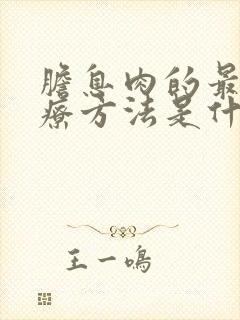 膽息肉的最
療方法是什
王一鳴